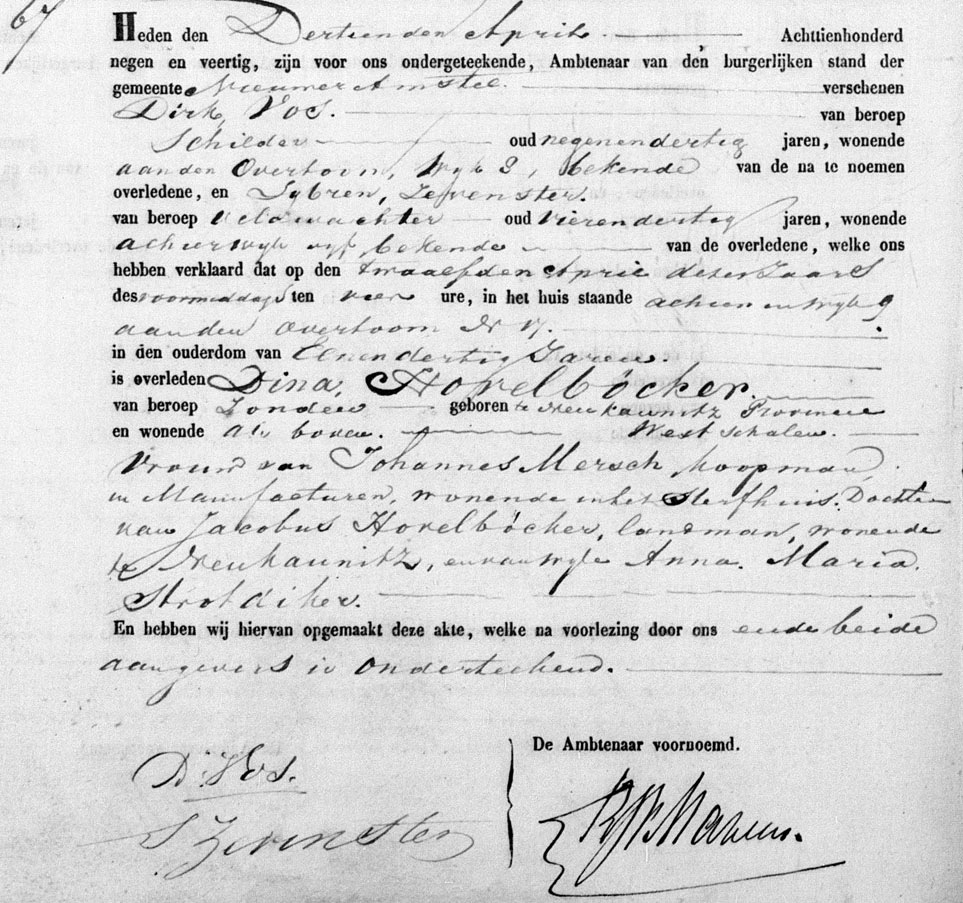 67
Heden den Dertienden April Achttienhonderd
negen en veertig, zijn voor ons ondergeteekende, Ambtenaar van den burgerlijken stand der
gemeente Nieuwer Amstel verschenen
Dirk Vos. van beroep
Schilder oud negenendertig jaren, wonende
aan den Overtoom, Wyk 3, bekende van de na te noemen
overledene, en Sybren, Zevenster.
van beroep veldwachter oud vierendertig jaren, wonende
alhier wyk vyf, bekende van de overledene, welke ons
hebben verklaard dat op den twaalfden April dezes Jaars
des voormiddags ten vier ure, in het huis staande alhier in wyk
aan den Overtoom
in den ouderdom van Eenendertig Jaren.
is overleden Dina, Hovelböcker.
van beroep Zonder geboren te Neukaunitz Provincie
en wonende Als boven. West schalen.
Vrouw van Johannes Mersch, koopman
in Manufacturen, wonende in het Sterfhuis. Dochter
van Jacobus Hovelböcker, landman, wonende
te Neukaunitz, en van wyle Anna. Maria.
Strotdiker.
En hebben wij hiervan opgemaakt deze akte, welke na voorlezing door ons en de beide
aangevers is onderteekend.
De Ambtenaar voornoemd.
D. Vos.
S Zevenster